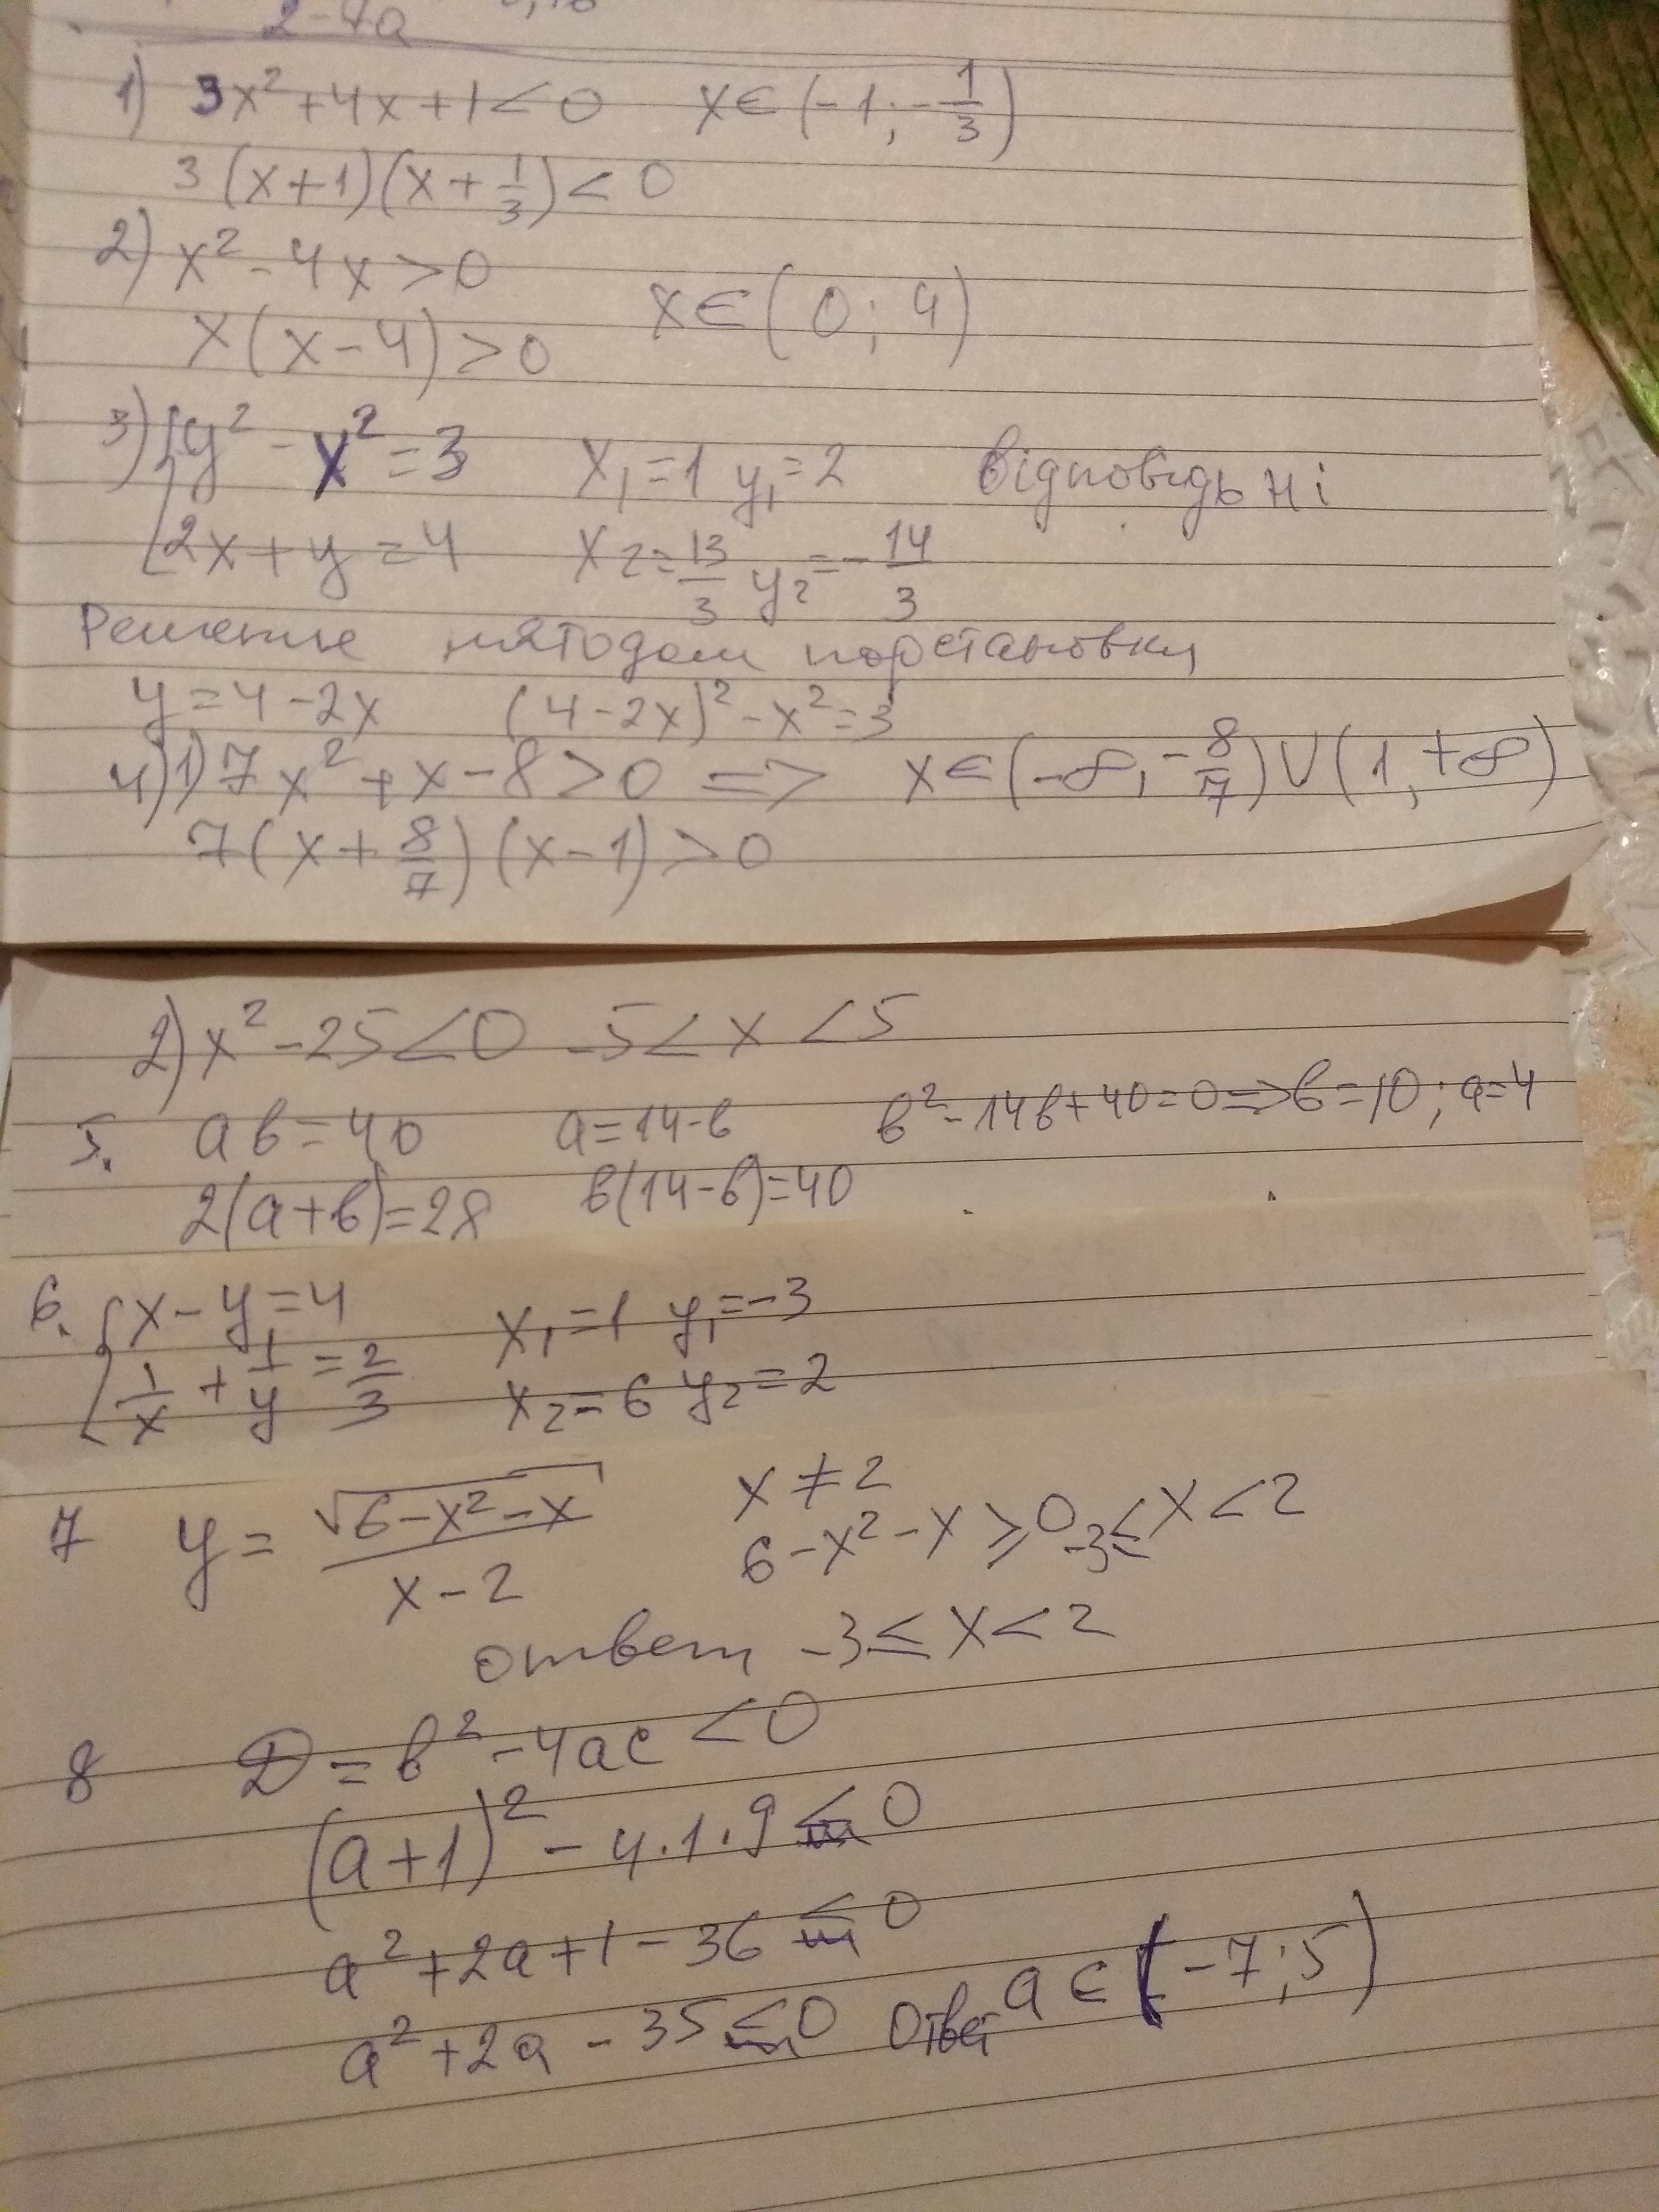 2-4a
1) 3x² + 4x + 1 < 0 x ∈ (-1; -1/3)
3(x+1)(x+1/3) < 0
2) x² - 4x > 0
x(x-4) > 0 x ∈ (0; 4)
3) { y² - x² = 3 x₁ = 1 y₁ = 2 відповідь ні
{ 2x + y = 4 x₂ = 13/3 y₂ = -14/3
Решение мятодом подстановки
y = 4 - 2x (4-2x)² - x² = 3
4) 1) 7x² + x - 8 > 0 => x ∈ (-∞, -8/7) ∪ (1, +∞)
7(x + 8/7)(x-1) > 0
2) x² - 25 < 0 -5 < x < 5
5. ab = 40 a = 14-b b² - 14b + 40 = 0 => b = 10; a = 4
2(a+b) = 28 b(14-b) = 40
6. { x - y = 4 x₁ = 1 y₁ = -3
{ 1/x + 1/y = 2/3 x₂ = 6 y₂ = 2
7 y = √(6-x²-x) / (x-2) x ≠ 2
6 - x² - x ⩾ 0 -3 ≤ x < 2
ответ -3 ≤ x < 2
8 D = b² - 4ac < 0
(a+1)² - 4·1·9 < 0
a² + 2a + 1 - 36 < 0
a² + 2a - 35 < 0 Ответ a ∈ (-7; 5)